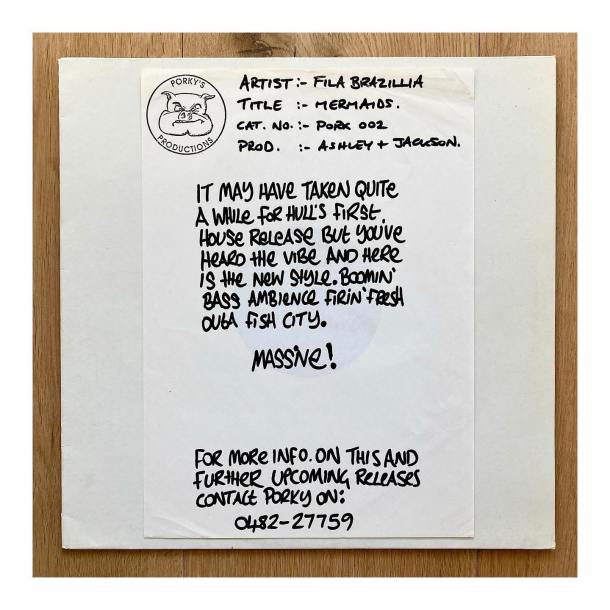 PORKY'S
PRODUCTIONS
ARTIST:- FILA BRAZILLIA
TITLE :- MERMAIDS.
CAT. NO.:- PORK 002
PROD. :- ASHLEY + JACKSON.
IT MAY HAVE TAKEN QUITE
A WHILE FOR HULL'S FIRST
HOUSE RELEASE BUT YOU'VE
HEARD THE VIBE AND HERE
IS THE NEW STYLE. BOOMIN'
BASS AMBIENCE FIRIN' FRESH
OUTA FISH CITY.
MASSIVE!
FOR MORE INFO. ON THIS AND
FURTHER UPCOMING RELEASES
CONTACT PORKY ON:
0482-27759